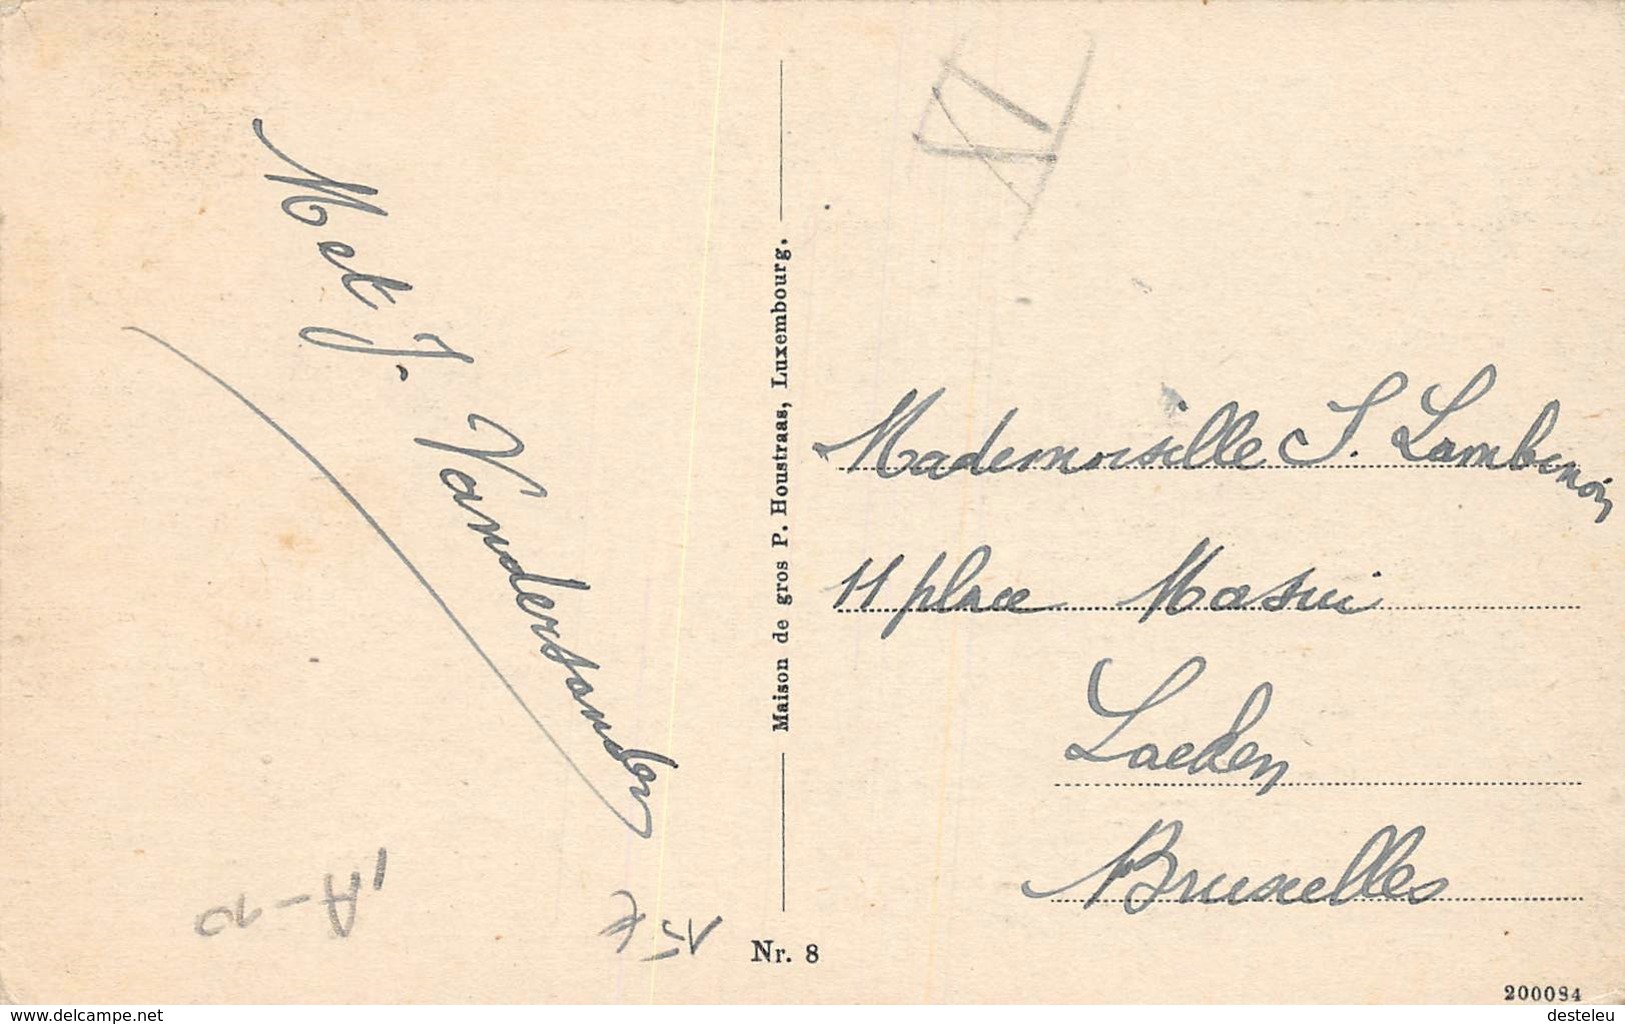 M et J. Vandersanden
Maison de gros P. Houstraas, Luxembourg.
Mademoiselle S. Lambinon
11 place Masui
Laeken
Bruxelles
XL
1A-10
15 €
Nr. 8
200084
www.delcampe.net
desteleu